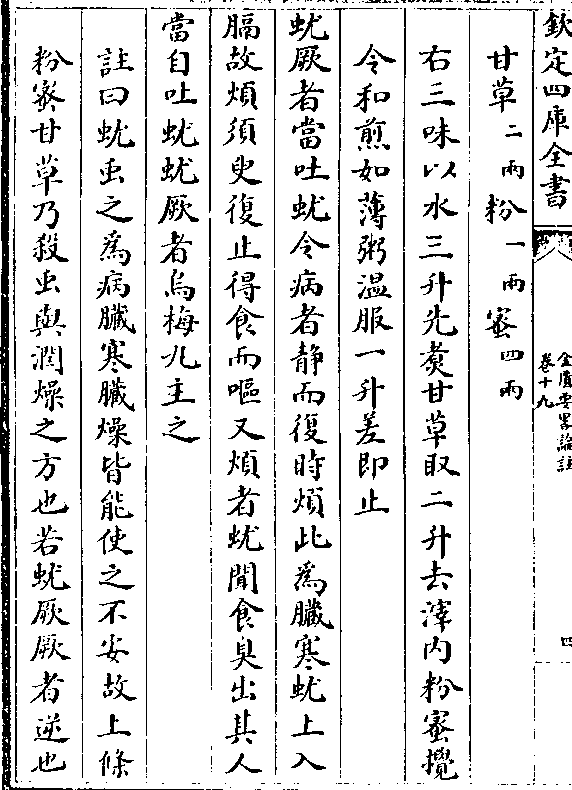 欽定四庫全書
金匱要畧論註
卷十九
四
甘草二兩粉一兩蜜四兩
右三味以水三升先煑甘草取二升去滓内粉蜜攪
令和煎如薄粥温服一升差即止
蚘厥者當吐蚘令病者静而復時煩此為臓寒蚘上入
膈故煩須臾復止得食而嘔又煩者蚘聞食臭出其人
當自吐蚘蚘厥者烏梅丸主之
註曰蚘虫之為病臓寒臓燥皆能使之不安故上條
粉蜜甘草乃殺虫與潤燥之方也若蚘厥厥者逆也